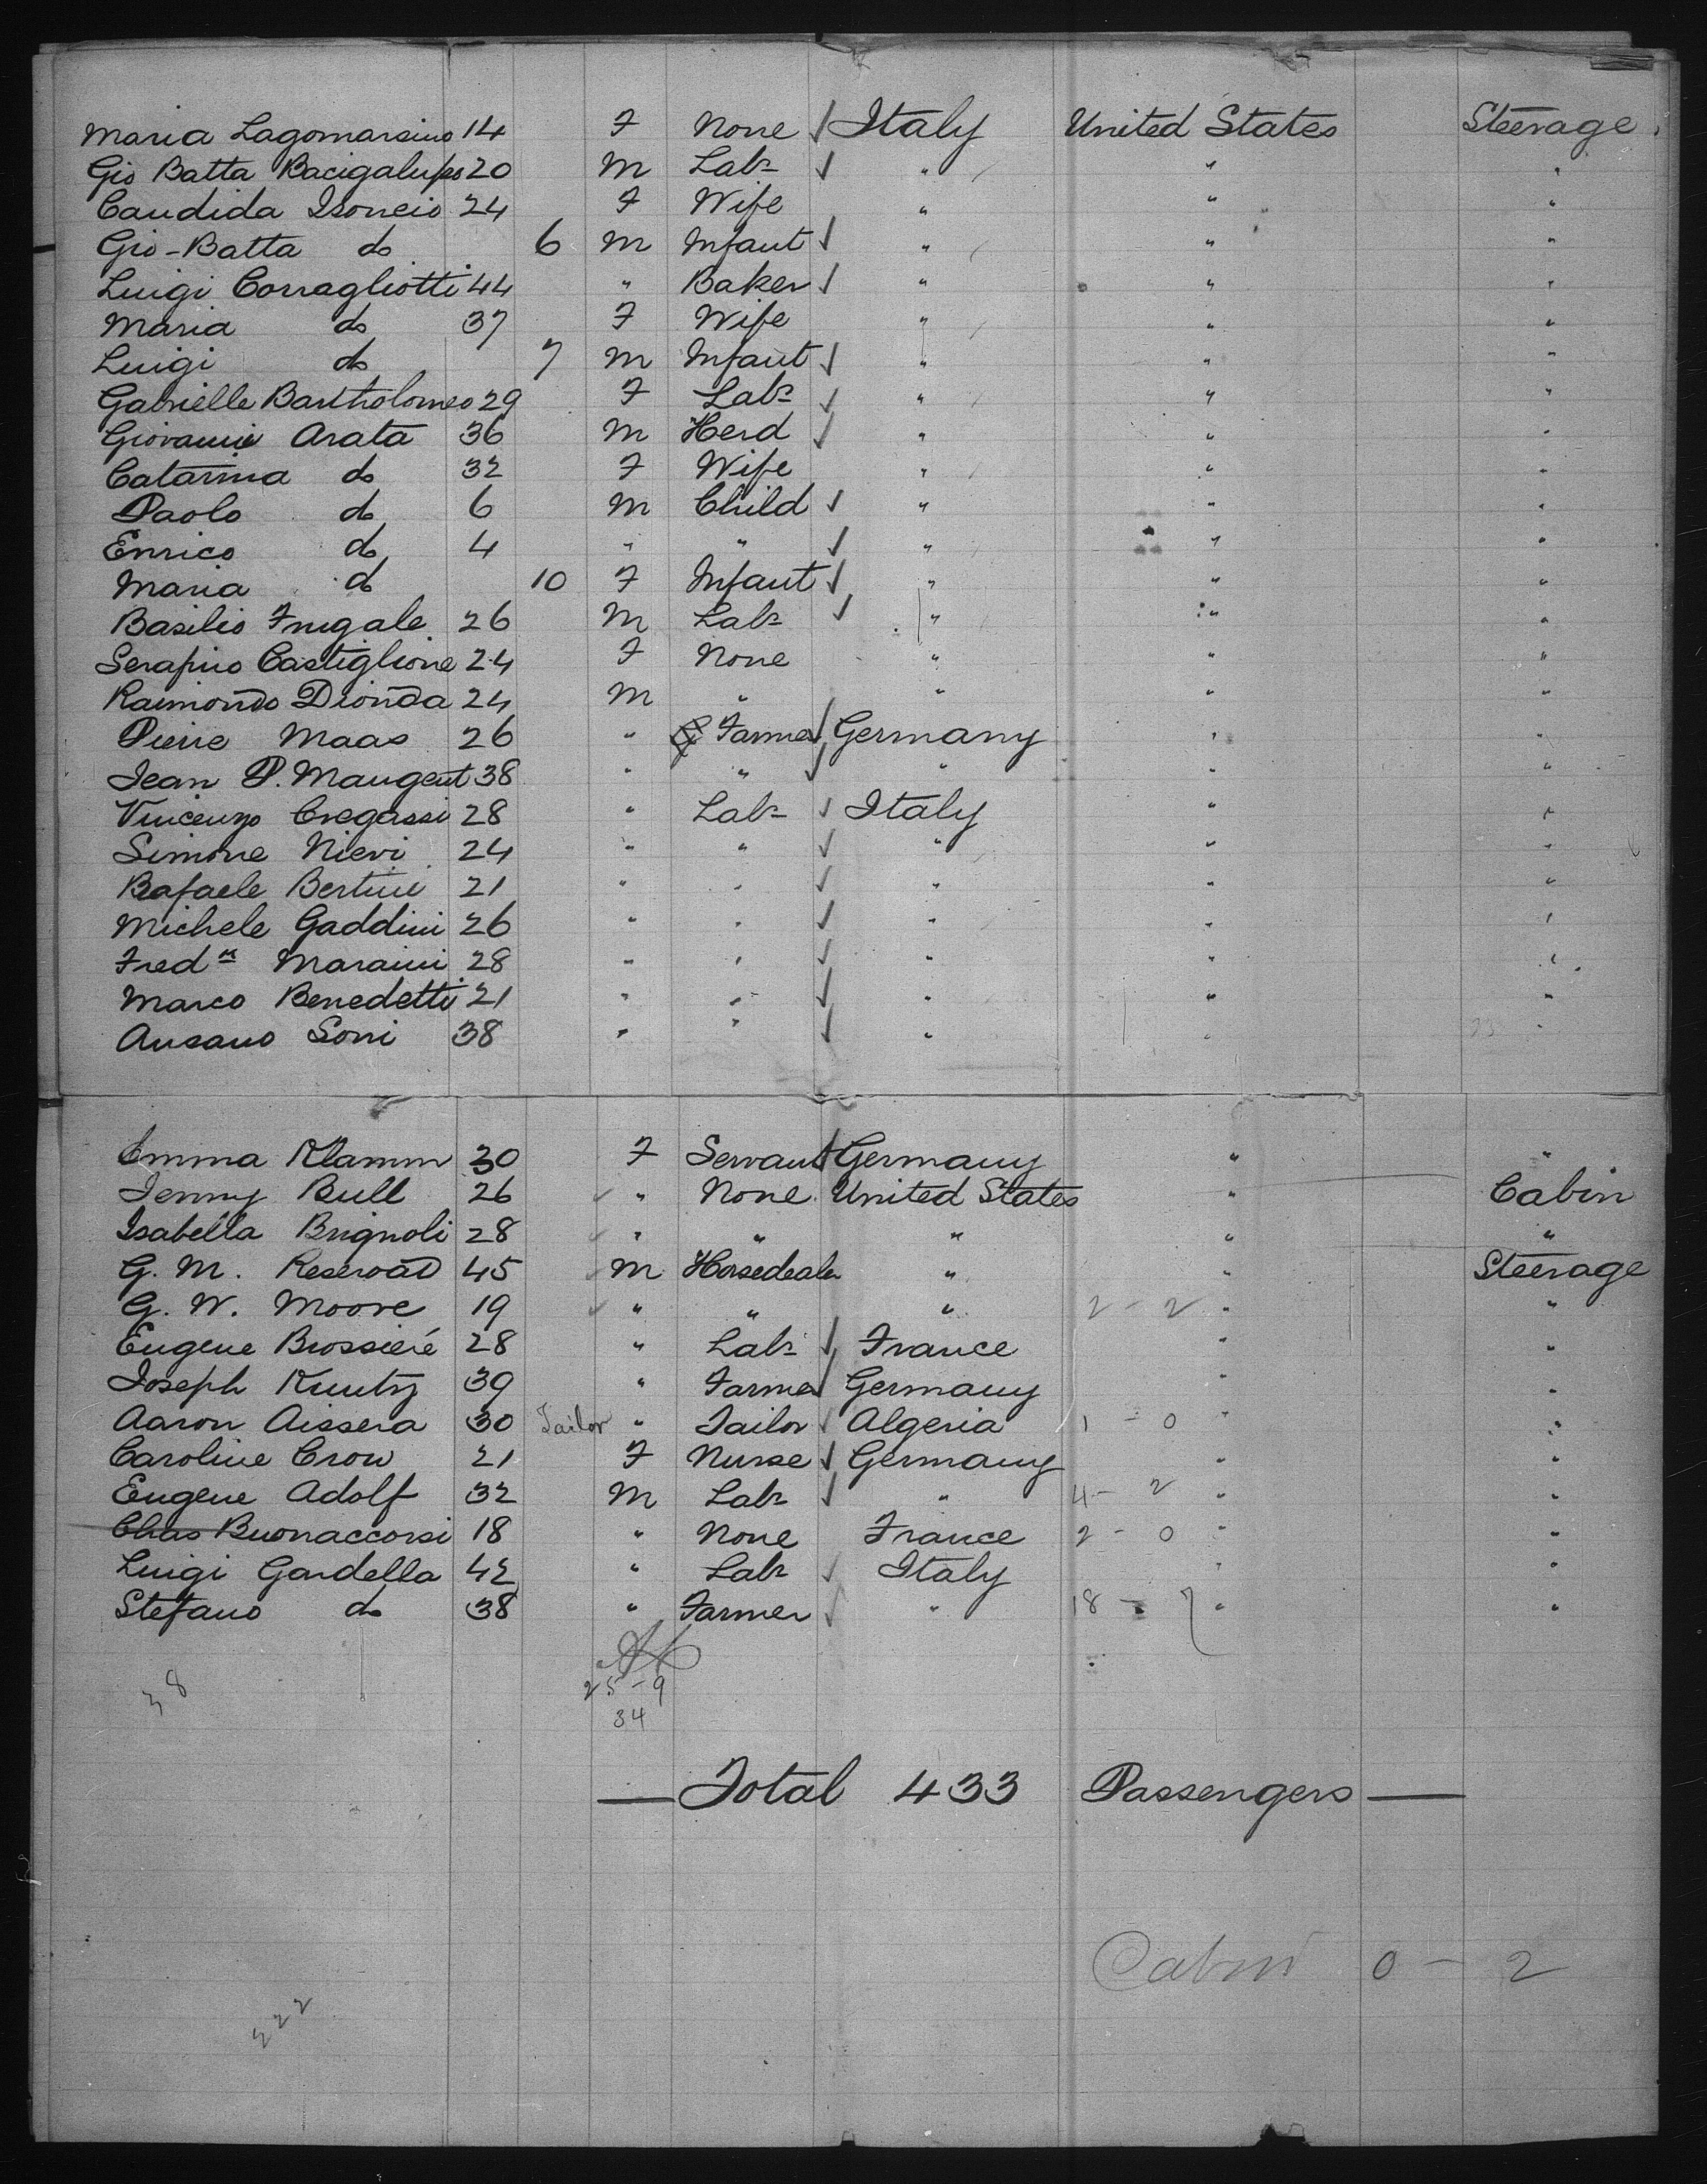 Maria Lagomarsino 14 F None ✓ Italy United States Steerage
Gio Batta Bacigalupo 20 M Labr ✓ " " "
Candida Isoncio 24 F Wife " " "
Gio-Batta do 6 M Infant ✓ " " "
Luigi Corragliotti 44 " Baker ✓ " " "
Maria do 37 F Wife " " "
Luigi do 7 M Infant ✓ " " "
Gabrielle Bartholomeo 29 F Labr ✓ " " "
Giovanni Arata 36 M Herd ✓ " " "
Catarina do 32 F Wife " " "
Paolo do 6 M Child ✓ " " "
Enrico do 4 " " ✓ " " "
Maria do 10 F Infant ✓ " " "
Basilio Frugale 26 M Labr ✓ " " "
Serapino Castiglione 24 F None " " "
Raimondo Dionda 24 M " " " "
Pierre Maas 26 " Farmer ✓ Germany " "
Jean P. Maugent 38 " " ✓ " " "
Vincenzo Cregassi 28 " Labr ✓ Italy " "
Simone Nievi 24 " " ✓ " " "
Rafaele Bertini 21 " " ✓ " " "
Michele Gaddini 26 " " ✓ " " "
Fredk Maraini 28 " " ✓ " " "
Marco Benedetti 21 " " ✓ " " "
Ansano Soni 38 " " ✓ " " "
Emma Klamm 30 F Servant ✓ Germany " "
Jenny Bull 26 ✓ " None United States " Cabin
Isabella Brignoli 28 ✓ " " " " "
G. M. 45 ✓ M Horsedealer " " Steerage
G. W. Moore 19 ✓ " " " 2 - 2 " "
Eugene Brossieré 28 " Labr ✓ France " "
Joseph Kuntz 39 " Farmer ✓ Germany " "
Aaron Aissera 30 Tailor " Tailor ✓ Algeria 1 - 0 " "
Caroline Crow 21 F Nurse ✓ Germany " "
Eugene Adolf 32 M Labr ✓ " 4 - 2 " "
Chas Buonaccorsi 18 " None France 2 - 0 " "
Luigi Gardella 42 " Labr ✓ Italy " "
Stefano do 38 " Farmer ✓ " 18 - 7 " "
38
25 - 9
34
Total 433 Passengers
Cabin 0 - 2
222